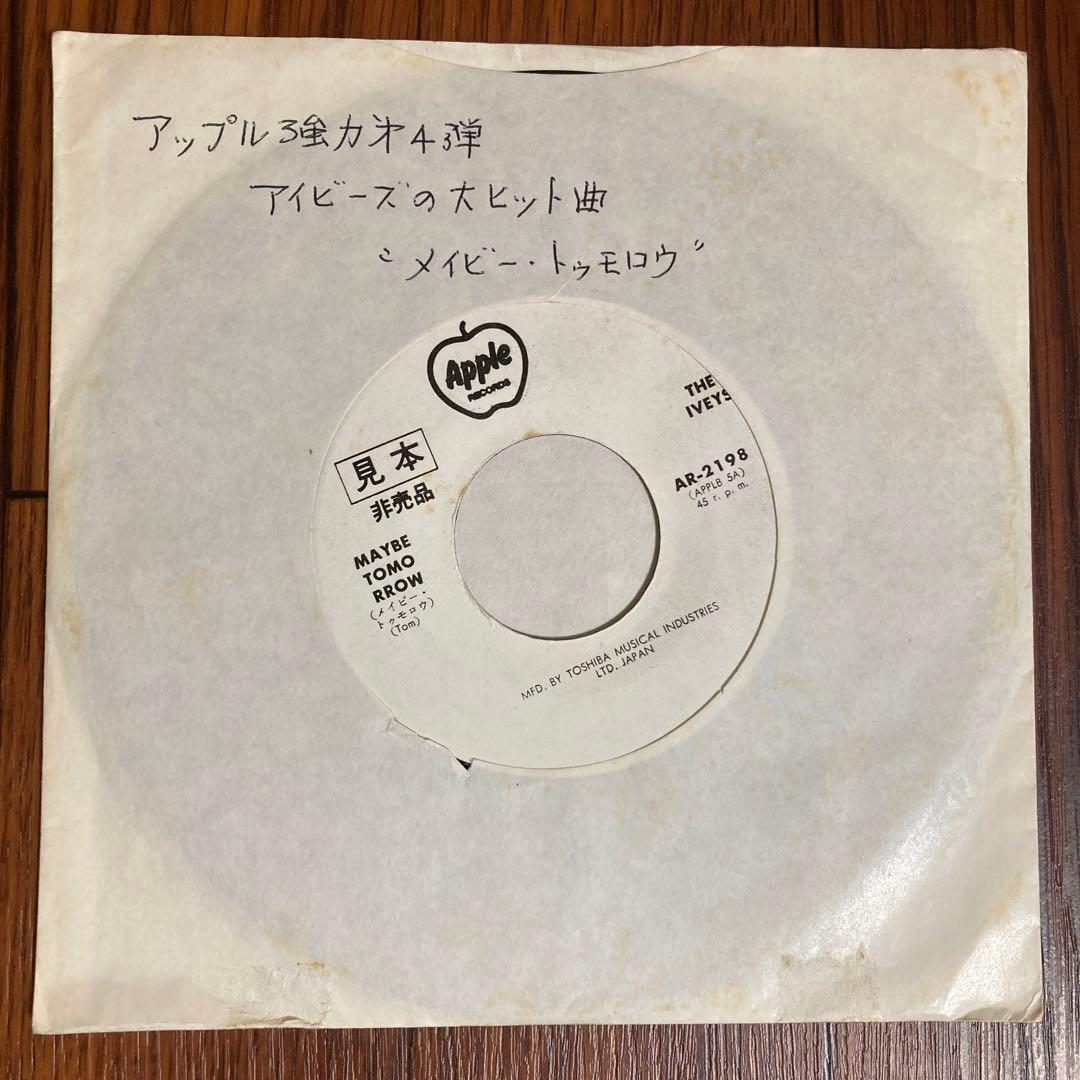 アップル強力才4弾
アイビーズの大ヒット曲
“メイビー・トゥモロウ”
Apple
RECORDS
THE
IVEYS
見本
非売品
AR-2198
(APPLB 5A)
45 r. p. m.
MAYBE
TOMO
RROW
(メイビー・
トゥモロウ)
(Tom)
MFD. BY TOSHIBA MUSICAL INDUSTRIES
LTD. JAPAN